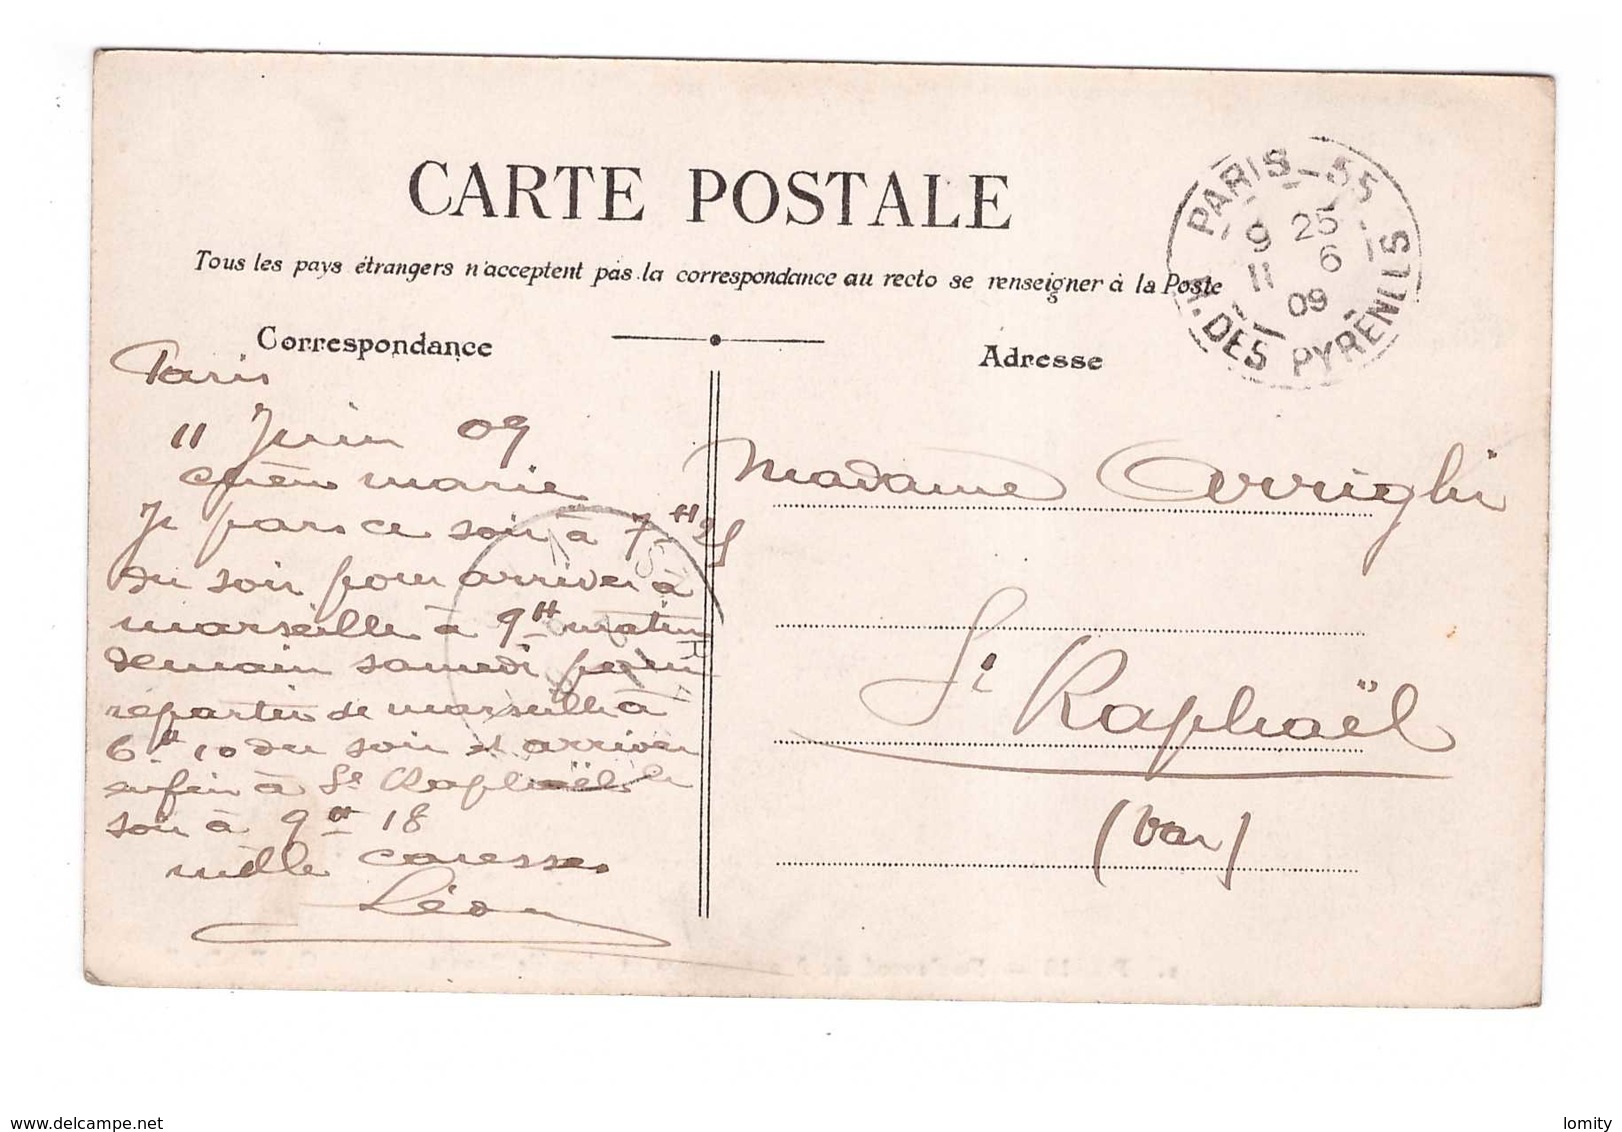 CARTE POSTALE
Tous les pays étrangers n'acceptent pas la correspondance au recto se renseigner à la Poste
Correspondance
Adresse
PARIS - 55
9 25
11 6
09
R. DES PYRENEES
Paris
11 Juin 09
marie
Je pars ce soir à 7 H 25
du soir pour arriver à
marseille à 9 H matin
demain samedi pour
repartir de marseille à
6 H 10 du soir et arriver
enfin à St Raphaël le
soir à 9 H 18
mille caresses
Léon
Madame Arrighi
St Raphaël
(Var)
www.delcampe.net
lomity